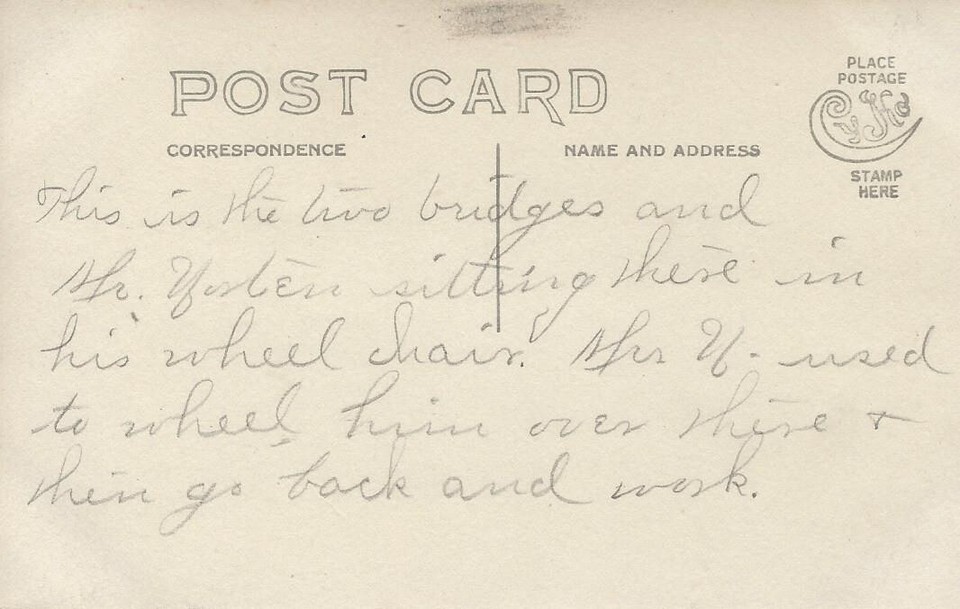 PLACE
POSTAGE
POST CARD
CORRESPONDENCE
NAME AND ADDRESS
CyKo
STAMP
HERE
This is the two bridges and
Mr. Yosten sitting there in
his wheel chair. Mrs Y- used
to wheel him over there +
then go back and work.